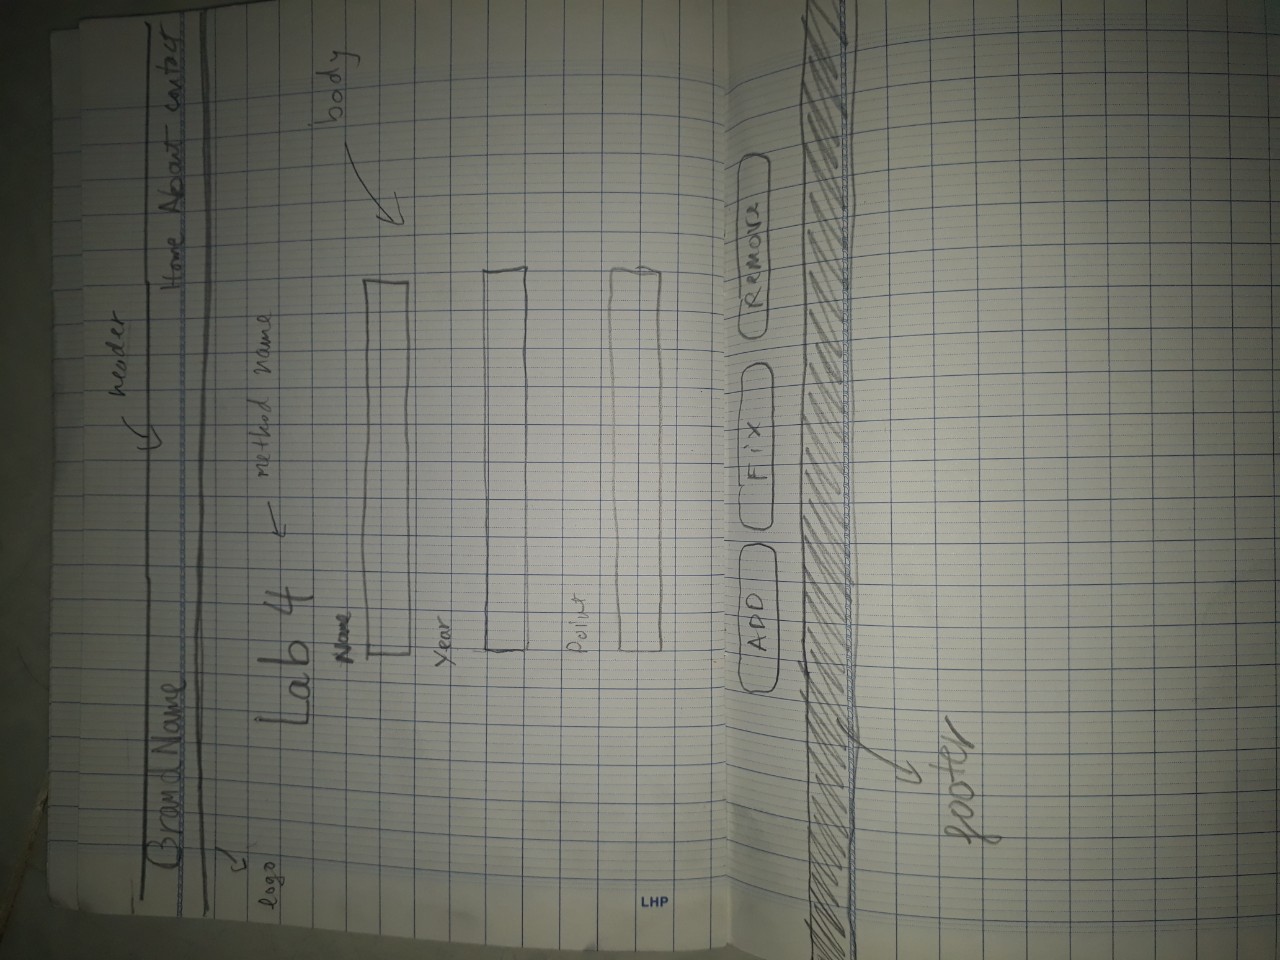 header
Brand Name Home About contact
logo
Lab 4 method name
body
Name
Year
Point
ADD Fix Remove
footer
LHP